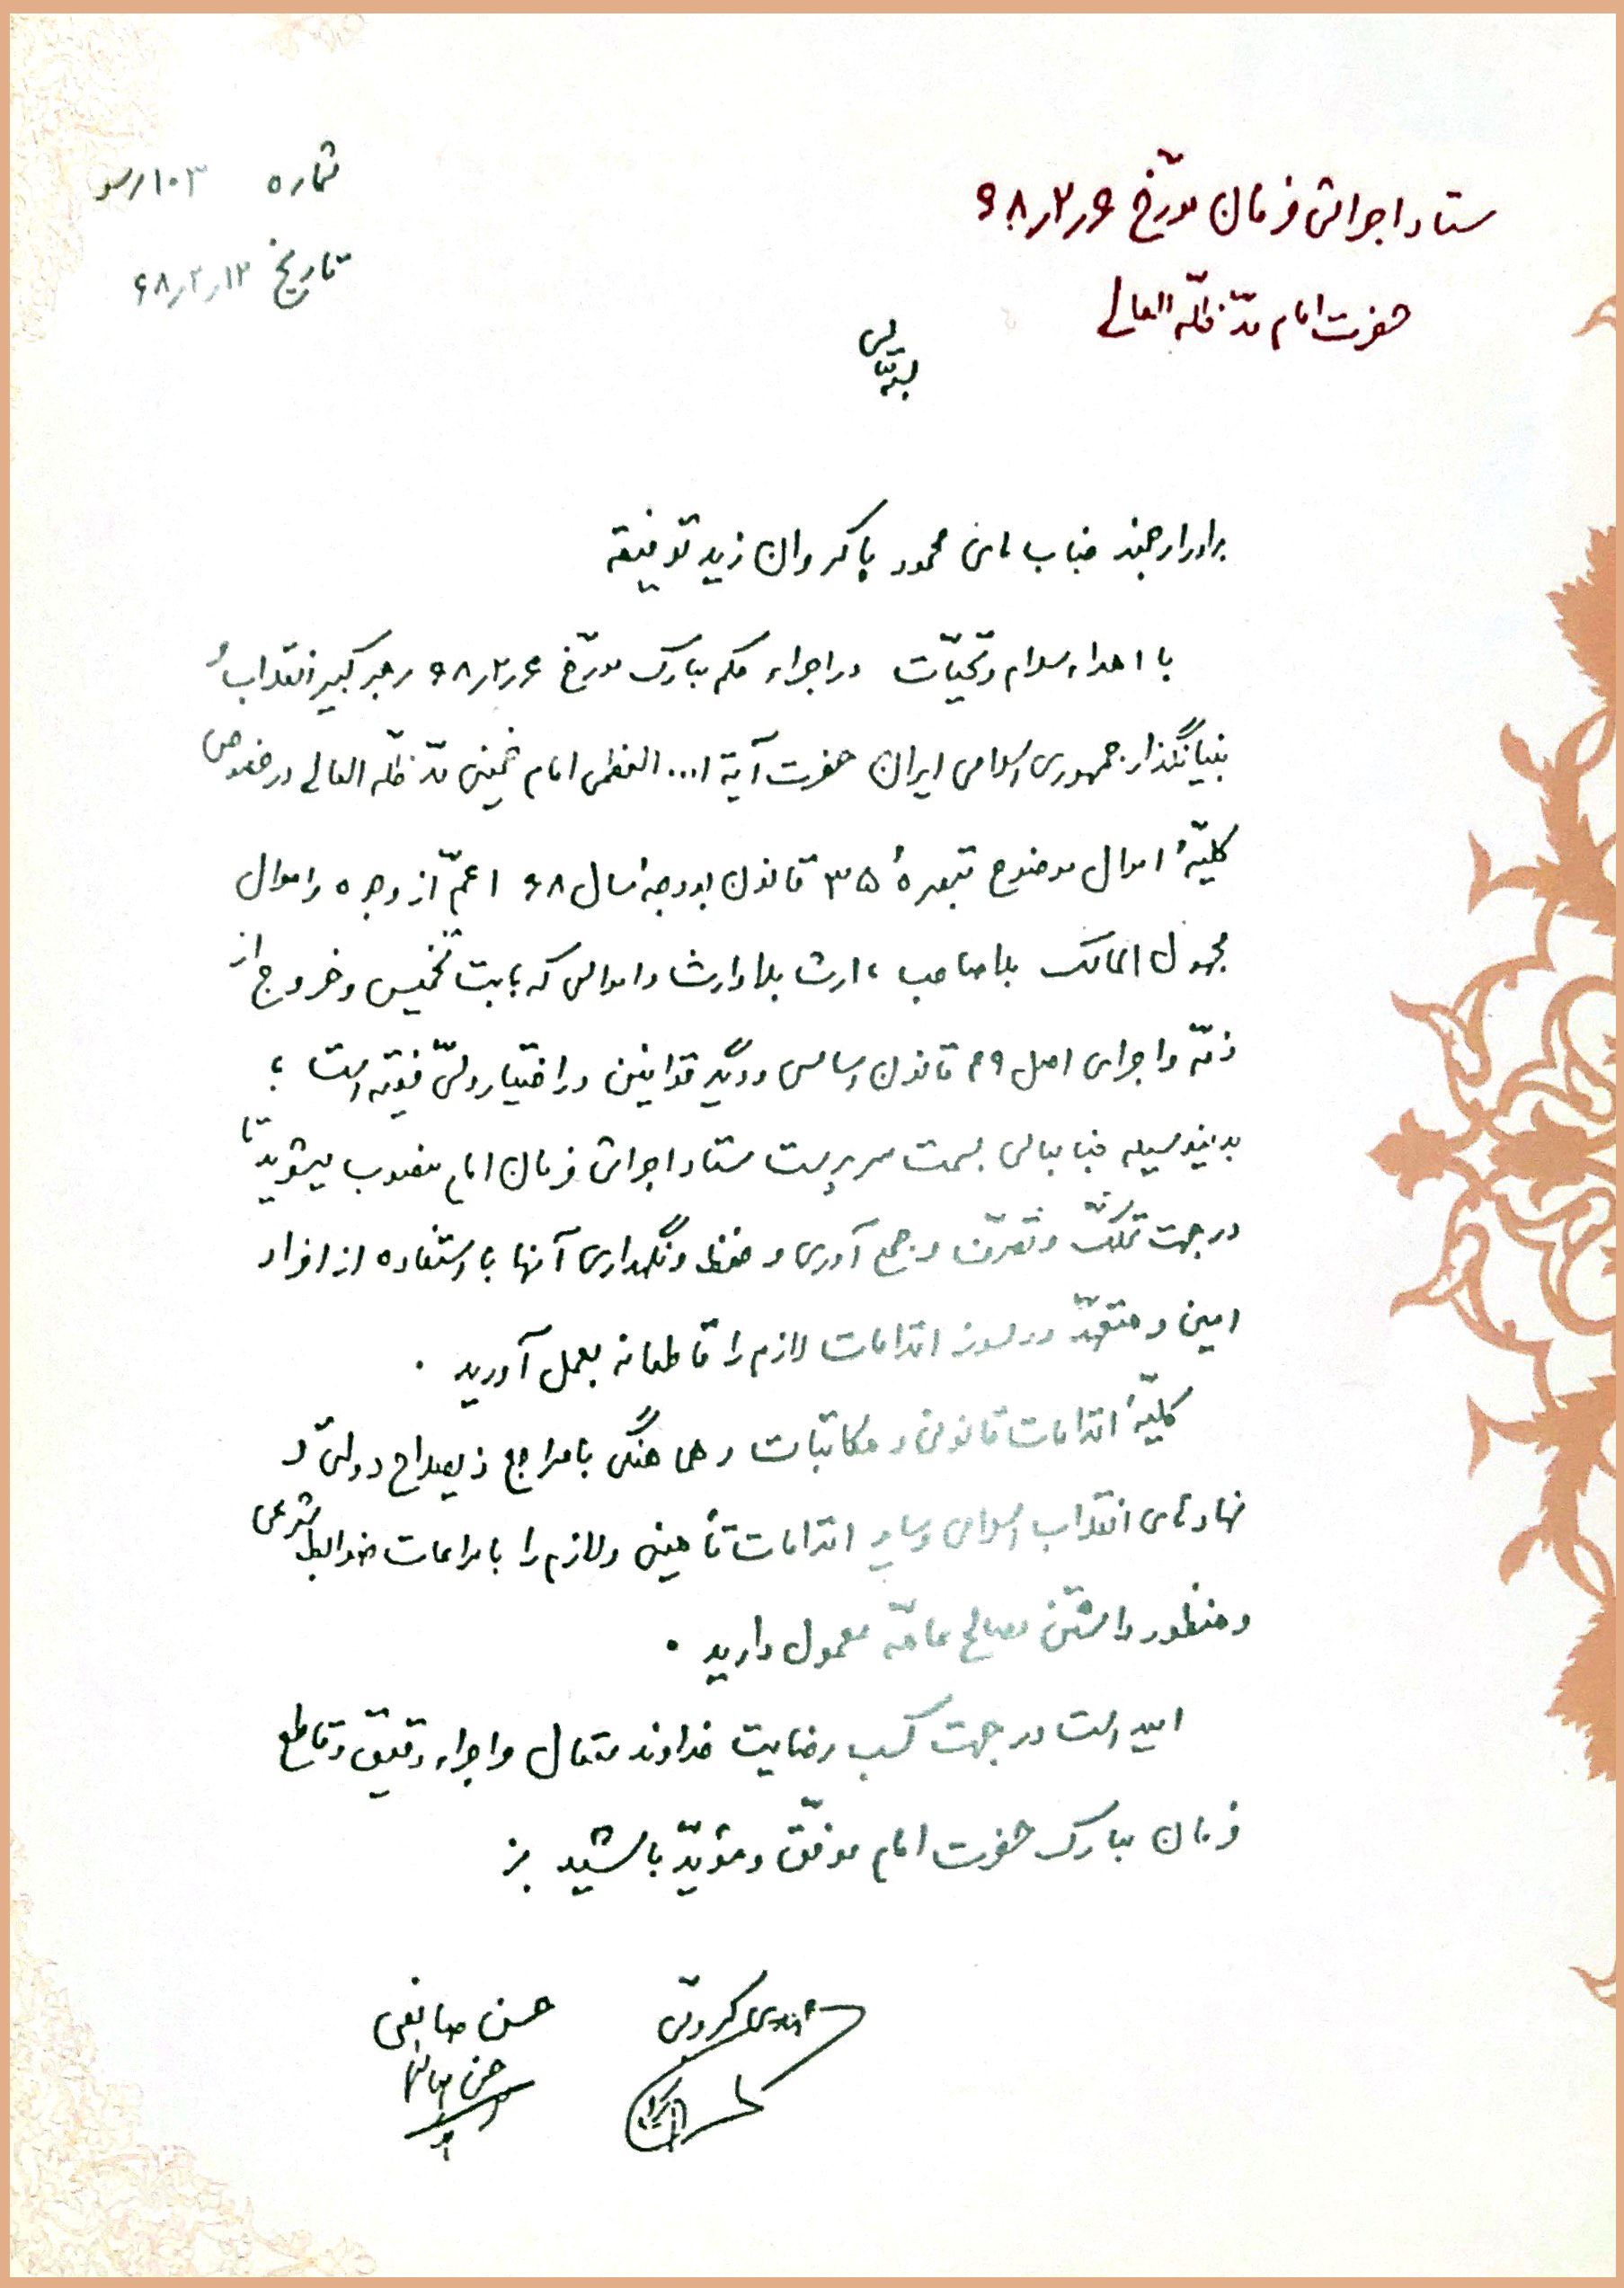 ستاد اجرائی فرمان مورّخ ۶ر۲ر۶۸
حضرت امام مدّ ظلّه العالی
شماره ۱۰۳ر
تاریخ ۱۲ر۲ر۶۸
برادر ارجمند جناب آقای محمود پاکروان زید توفیقه
با اهداء سلام و تحیّات در اجراء حکم مبارک مورّخ ۶ر۲ر۶۸ رهبر کبیر انقلاب و
بنیانگذار جمهوری اسلامی ایران حضرت آیة ا... العظمی امام خمینی مدّ ظلّه العالی در خصوص
کلیّهٔ اموال موضوع تبصرهٔ ۳۵ قانون بودجهٔ سال ۶۸ اعمّ از وجوه و اموال
مجهول المالک بلاصاحب، ارث بلا وارث و اموالی که بابت تخمیس و خروج از
ذمّه و اجرای اصل ۴۹ قانون اساسی و دیگر قوانین در اختیار ولیّ فقیه است ؛
بدینوسیله جنابعالی بسمت سرپرست ستاد اجرائی فرمان امام منصوب میشوید تا
در جهت تملّک و تصرّف و جمع آوری و حفظ و نگهداری آنها با استفاده از افراد
امین و متعهّد و دلسوز اقدامات لازم را قاطعانه بعمل آورید .
کلیّهٔ اقدامات قانونی و مکاتبات و هماهنگی با مراجع ذیصلاح دولتی و
نهادهای انقلاب اسلامی و سایر اقدامات تأمینی و لازم را با مراعات ضوابط شرعی
و منظور داشتن مصالح عامّه معمول دارید .
امید است در جهت کسب رضایت خداوند متعال و اجراء دقیق و قاطع
فرمان مبارک حضرت امام موفّق و مؤیّد باشید
مهدی کروبی
حسن صانعی
حسن صانعی